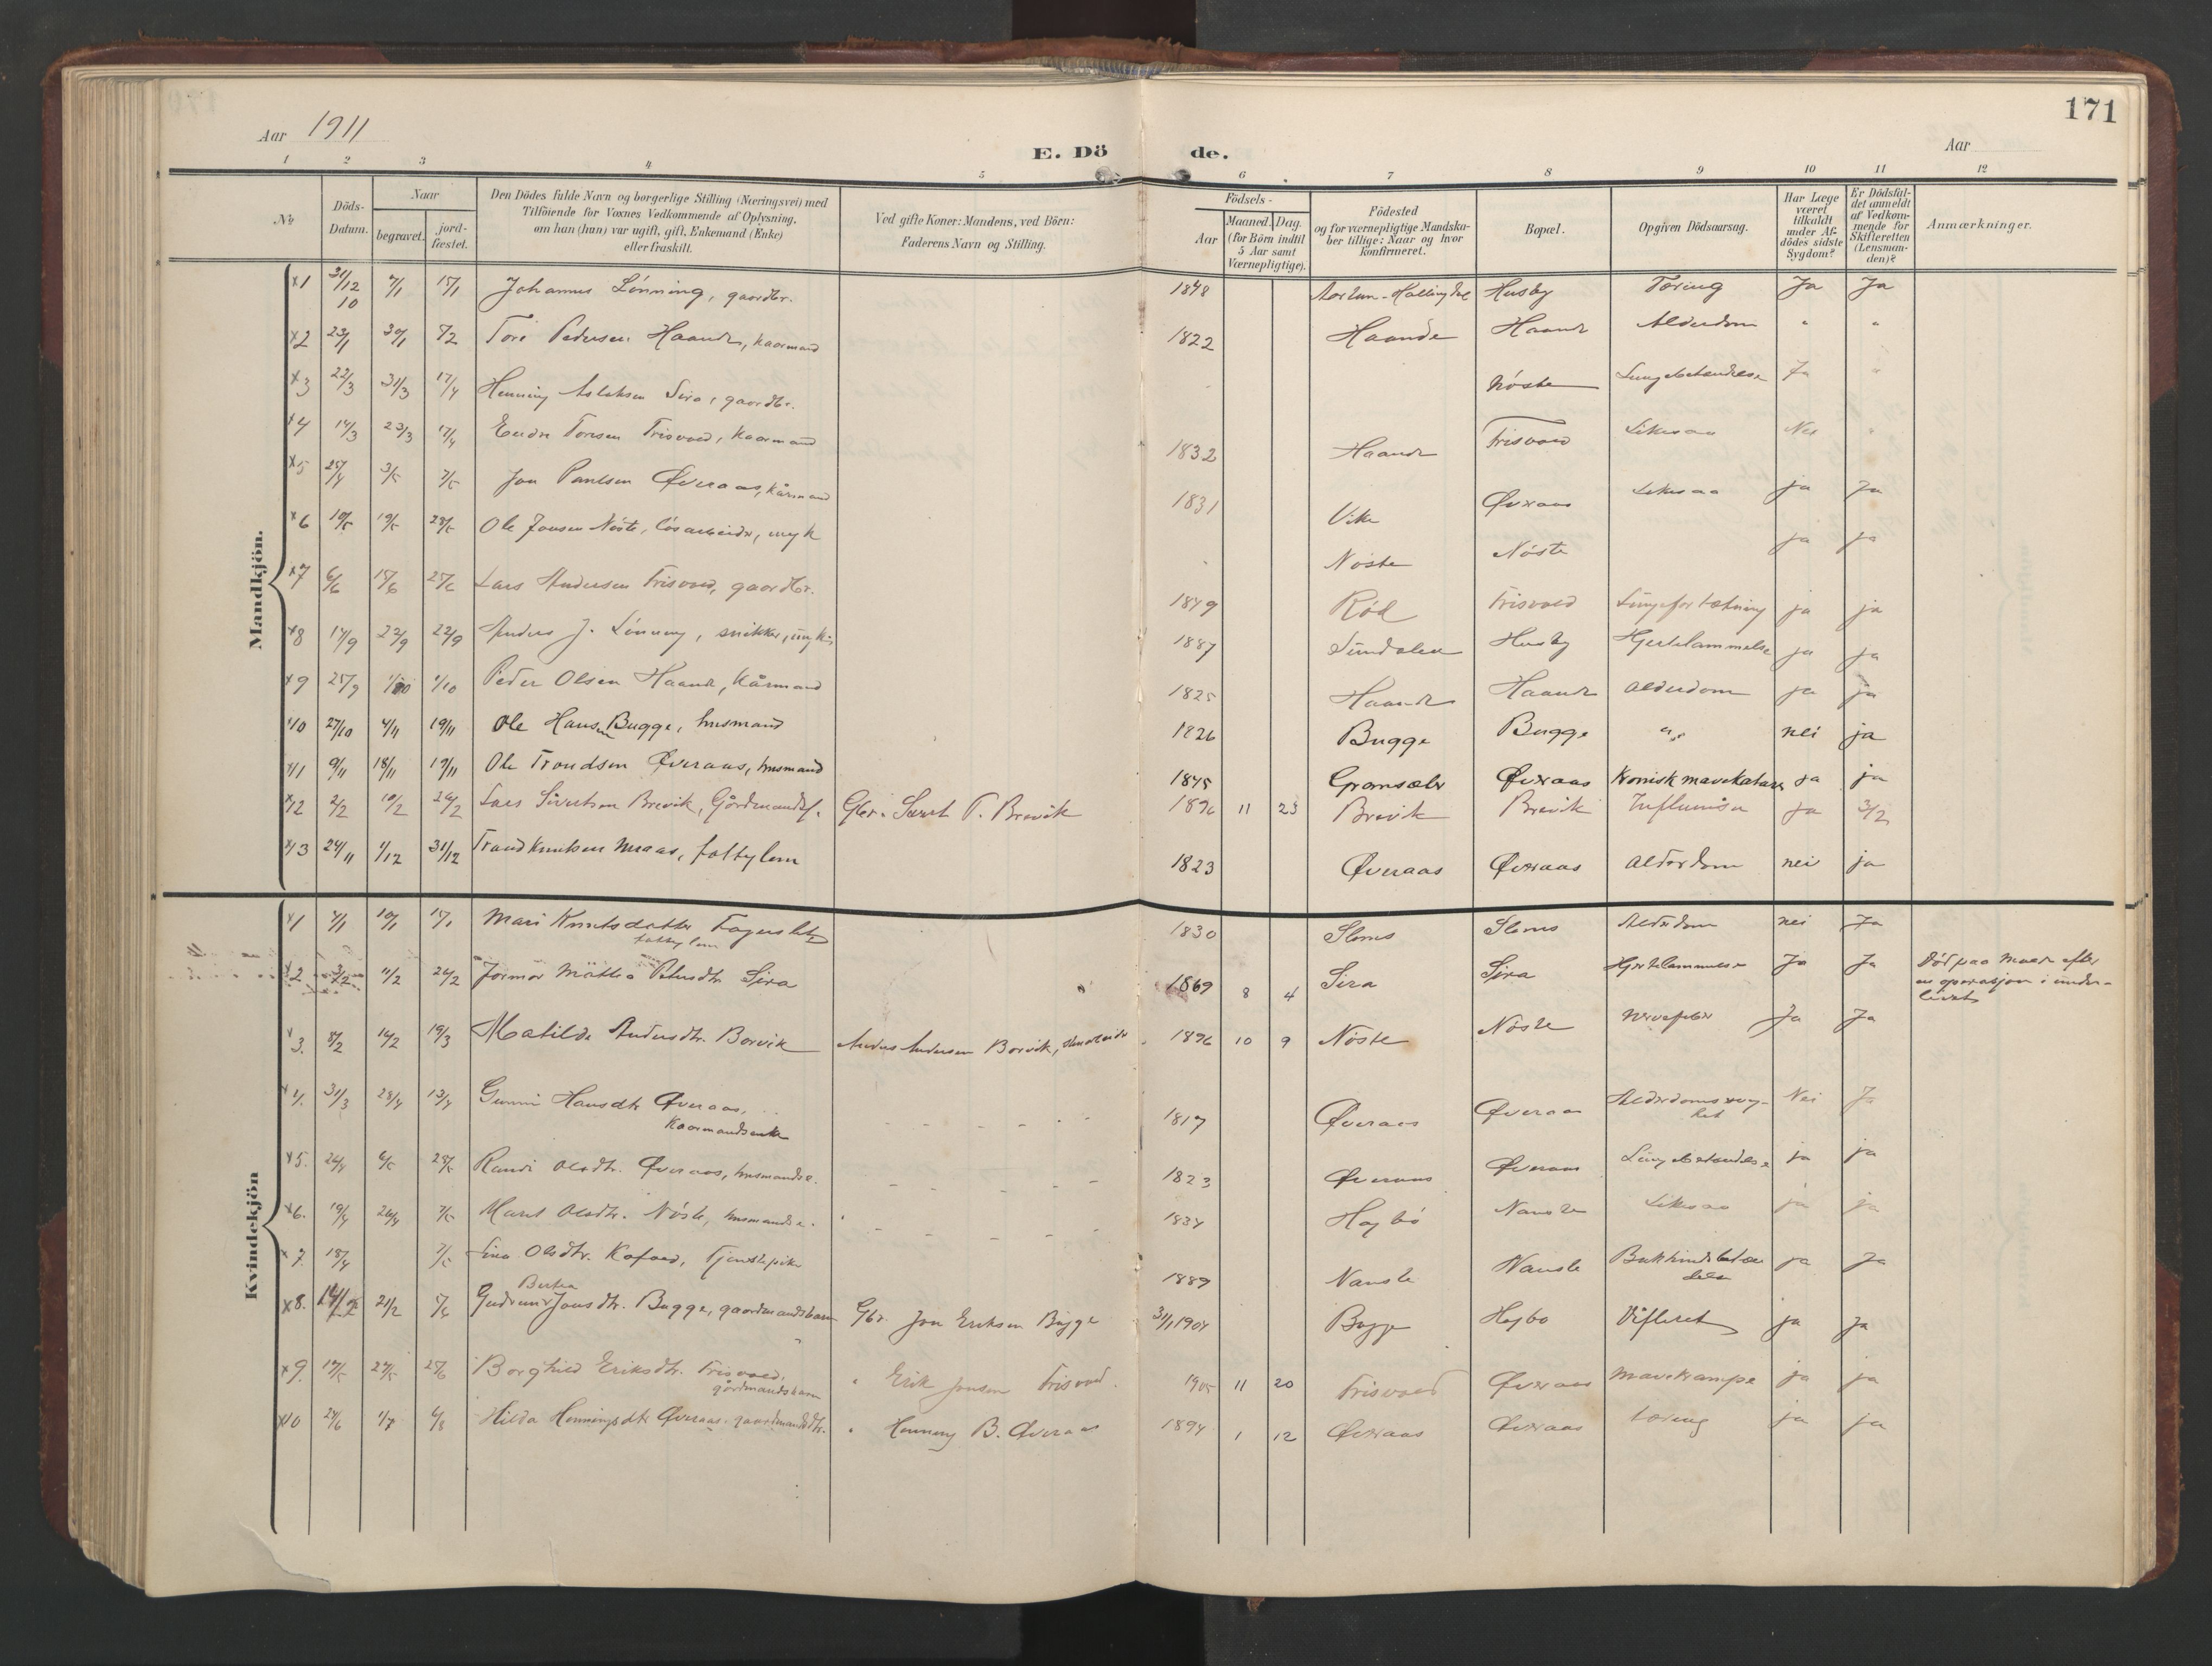 171
Aar 1911
E. Döde.
Aar
1 2 3 4 5 6 7 8 9 10 11 12
№
Döds-Datum.
Naar
begravet.
jord-fæstet.
Den Dödes fulde Navn og borgerlige Stilling (Næringsvei) med
Tilföiende for Voxnes Vedkommende af Oplysning,
om han (hun) var ugift, gift, Enkemand (Enke)
eller fraskilt.
Ved gifte Koner: Mandens, ved Börn:
Faderens Navn og Stilling.
Födsels-
Aar
Maaned. Dag.
(for Börn indtil
5 Aar samt
Værnepligtige).
Födested
og for værnepligtige Mandska-
ber tillige: Naar og hvor
konfirmeret.
Bopæl.
Opgiven Dödsaarsag.
Har Læge
været
tilkaldt
under Af-
dödes sidste
Sygdom?
Er Dödsfal-
det anmeldt
af Vedkom-
mende for
Skifteretten
(Lensman-
den)?
Anmærkninger.
Mandkjön.
x1 31/12 10 7/1 15/1 Johannes Lönning, gaardbr. 1848 Husby Tæring Ja Ja
x2 23/1 30/1 Tore Pedersen Haande, Kaarmand 1822 Haande Haande Alderdom " "
x3 22/3 31/3 17/4 Henning Aslaksen Sira, gaardbr. Nöste Lungebetændelse Ja "
x4 14/3 23/3 17/4 Endre Toresen Trisvold, Kaarmand 1832 Haande Likesaa Nei "
x5 25/4 3/5 7/5 Jon Paulsen Øveraas, Kårmand 1831 Vike Øveraas Likesaa ja Ja
x6 10/5 19/5 28/5 Ole Jonsen Nöste, lösarbeider, ungk Nöste Nöste ja ja
x7 6/6 15/6 25/6 Lars Andersen Trisvold, gaardbr. 1849 Röd Lungefortætning ja ja
x8 17/9 22/9 22/9 Anders J. Lönning, snikker, ungk. 1887 Sundalen Husby Hjertelammelse ja ja
x9 25/9 1/10 1/10 Peder Olsen Haande, Kårmand 1825 Haande Haande Alderdom ja ja
x10 27/10 4/11 19/11 Ole Hansen Bugge, husmand 1826 Bugge Bugge " nei ja
x11 9/11 18/11 19/11 Ole Trondsen Øveraas, husmand 1845 Øveraas Kronisk mavekatarr ja ja
x12 2/2 10/2 26/2 Lars Sivertsen Brevik, Gårdmands. Gbr. Sivert T. Brevik 1896 11 23 Brevik Brevik Influensa ja 3/2
x13 24/11 1/12 31/12 Trond Knutsen Maas, fattiglem 1823 Øveraas Øveraas Alderdom nei ja
Kvindekjön
x1 10/1 15/1 Mari Knutsdatter
fattiglem 1830 Slems Slems Alderdom nei Ja
x2 3/2 11/2 26/2 Jormor Mattea Petersdtr Sira 1869 8 4 Sira Sira Hjertelammelse Ja Ja Död paa Molde efter
en operasjon i under-
livet
x3. 8/2 14/2 19/3 Matilde Andersdtr. Borvik Anders Andersen Borvik, 1896 10 9 Nöste Nöste Nervefeber Ja Ja
x4. 31/3 13/4 Gunni Hansdtr Øveraas,
Kaarmandsenke 1817 Øveraas Øveraas Alderdomssvag-
het Nei Ja
x5. 6/5 28/5 Randi Olsdtr. Øveraas, husmandse. 1823 Øveraas Øveraas Lungebetændelse ja ja
x6. 19/4 26/4 7/5 Marit Olsdtr. Nöste, husmandse. 1834 Hagbö Nauste Likesaa ja ja
x7. 18/4 7/5 Olsdtr. Kafaas, Tjenestepike 1889 Nauste Nauste Bukhindebetæn
delse ja Ja
x8. 14/2 21/2 Gudrun Bertea Jonsdtr. Bugge, gaardmandsbarn Gbr. Jon Eriksen Bugge 31/1 1904 Bugge Hagbö ja Ja
x9. 27/5 25/6 Borghild Eriksdtr. Trisvold,
gårdmandsbarn " Erik Jonsen Trisvold. 1905 11 20 Trisvold Øveraas Mavekrampe ja ja
x10 1/7 6/8 Hilda Henningsdtr Øveraas, gaardmandsdtr. " Henning B. Øveraas 1894 1 12 Øveraas Øveraas Tæring ja ja